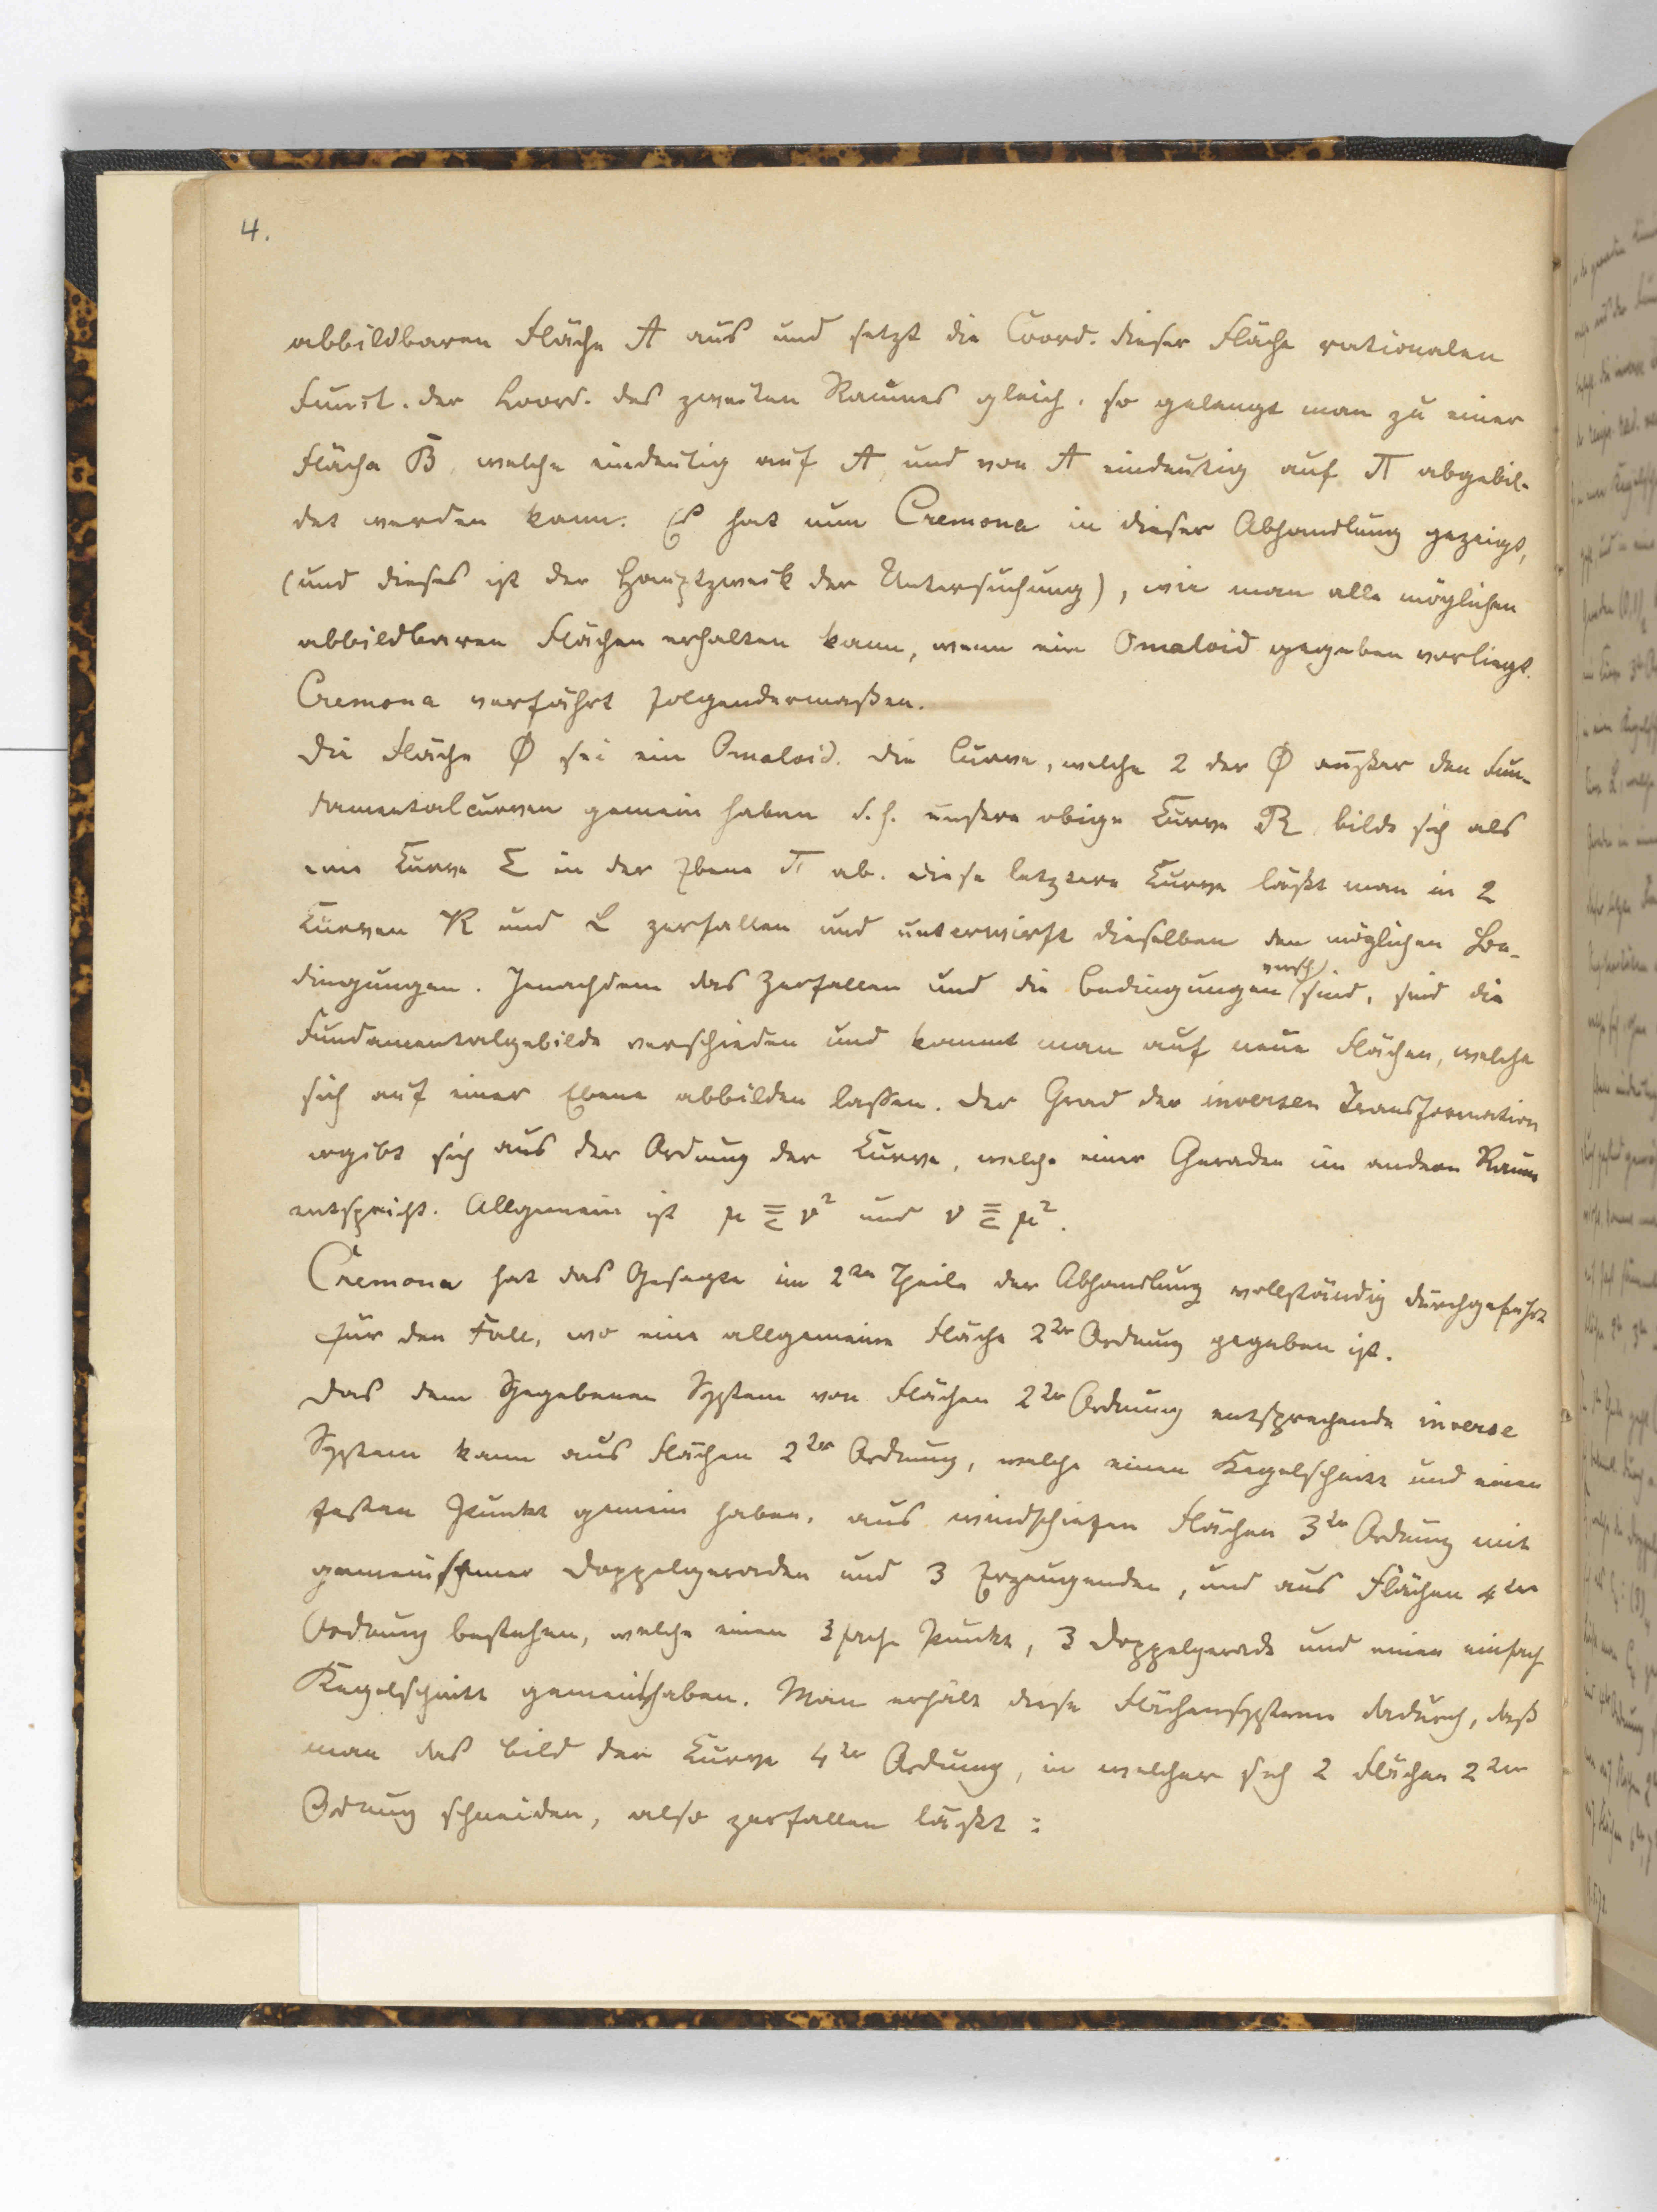 4.
abbildbaren Fläche A aus und setzt die Coord. dieser Fläche rationalen
Funct. der Coord. des zweiten Raumes gleich, so gelangt man zu einer
Fläche B, welche eindeutig auf A und von A eindeutig auf π abgebil-
det werden kann. Es hat nun Cremona in dieser Abhandlung gezeigt,
(und dieses ist der Hauptzweck der Untersuchung), wie man alle möglichen
abbildbaren Flächen erhalten kann, wenn ein Omaloid gegeben vorliegt.
Cremona verfährt folgendermaßen.
Die Fläche Φ sei ein Omaloid. Die Curve, welche 2 der Φ außer den Fun-
damentalcurven gemein haben d.h. unsere obige Curve R bilde sich als
eine Curve Σ in der Ebene π ab. Diese letztere Curve läßt man in 2
Curven K und L zerfallen und unterwirft dieselben den möglichen Be-
dingungen. Jenachdem das Zerfallen und die Bedingungen versch. sind, sind die
Fundamentalgebilde verschieden und kommt man auf neue Flächen, welche
sich auf einer Ebene abbilden lassen. Der Grad der inversen Transformation
ergibt sich aus der Ordnung der Curve, welche einer Geraden im andern Raum
entspricht. Allgemein ist μ ≦ ν² und ν ≦ μ².
Cremona hat das Gesagte im 2ten Theile der Abhandlung vollständig durchgeführt
für den Fall, wo eine allgemeine Fläche 2ter Ordnung gegeben ist.
Das dem Gegebenen System von Flächen 2ter Ordnung entsprechende inverse
System kann aus Flächen 2ter Ordnung, welche einen Kegelschnitt und einen
festen Punkt gemein haben, aus windschiefen Flächen 3ter Ordnung mit
gemeinsamer Doppelgeraden und 3 Erzeugenden, und aus Flächen 4ter
Ordnung bestehen, welche einen 3fache Punkt, 3 Doppelgerade und einen einfach
Kegelschnitt gemein haben. Man erhält diese Flächensysteme dadurch, daß
man das Bild der Curve 4ter Ordnung, in welcher sich 2 Flächen 2ter
Ordnug schneiden, also zerfallen läßt: